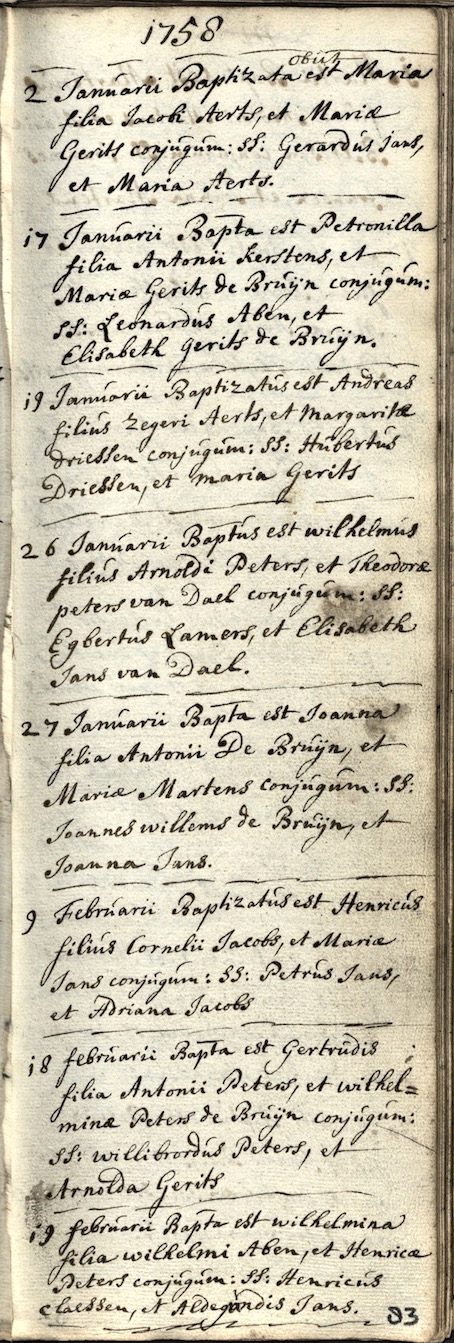 1758
obiit
2 Januarii Baptizata est Maria
filia Jacobi Aerts, et Mariæ
Gerits conjugum: SS: Gerardus Jans,
et Maria Aerts.
17 Januarii Bapta est Petronilla
filia Antonii Kerstens, et
Mariæ Gerits de Bruijn conjugum:
SS: Leonardus Aben, et
Elisabeth Gerits de Bruijn.
19 Januarii Baptizatus est Andreas
filius Zegeri Aerts, et Margaritæ
Driessen conjugum: SS: Hubertus
Driessen, et Maria Gerits
26 Januarii Baptus est wilhelmus
filius Arnoldi Peters, et Theodoræ
peters van Dael conjugum: SS:
Egbertus Lamers, et Elisabeth
Jans van Dael.
27 Januarii Bapta est Joanna
filia Antonii De Bruijn, et
Mariæ Martens conjugum: SS:
Joannes willems de Bruijn, et
Joanna Jans.
9 Februarii Baptizatus est Henricus
filius Cornelii Jacobs, et Mariæ
Jans conjugum: SS: Petrus Jans,
et Adriana Jacobs
18 februarii Bapta est Gertrudis
filia Antonii Peters, et wilhel=
minæ Peters de Bruijn conjugum:
SS: willibrordus Peters, et
Arnolda Gerits
19 februarii Bapta est wilhelmina
filia wilhelmi Aben, et Henricæ
Peters conjugum: SS: Henricus
Claessen, et Aldegondis Jans.
83